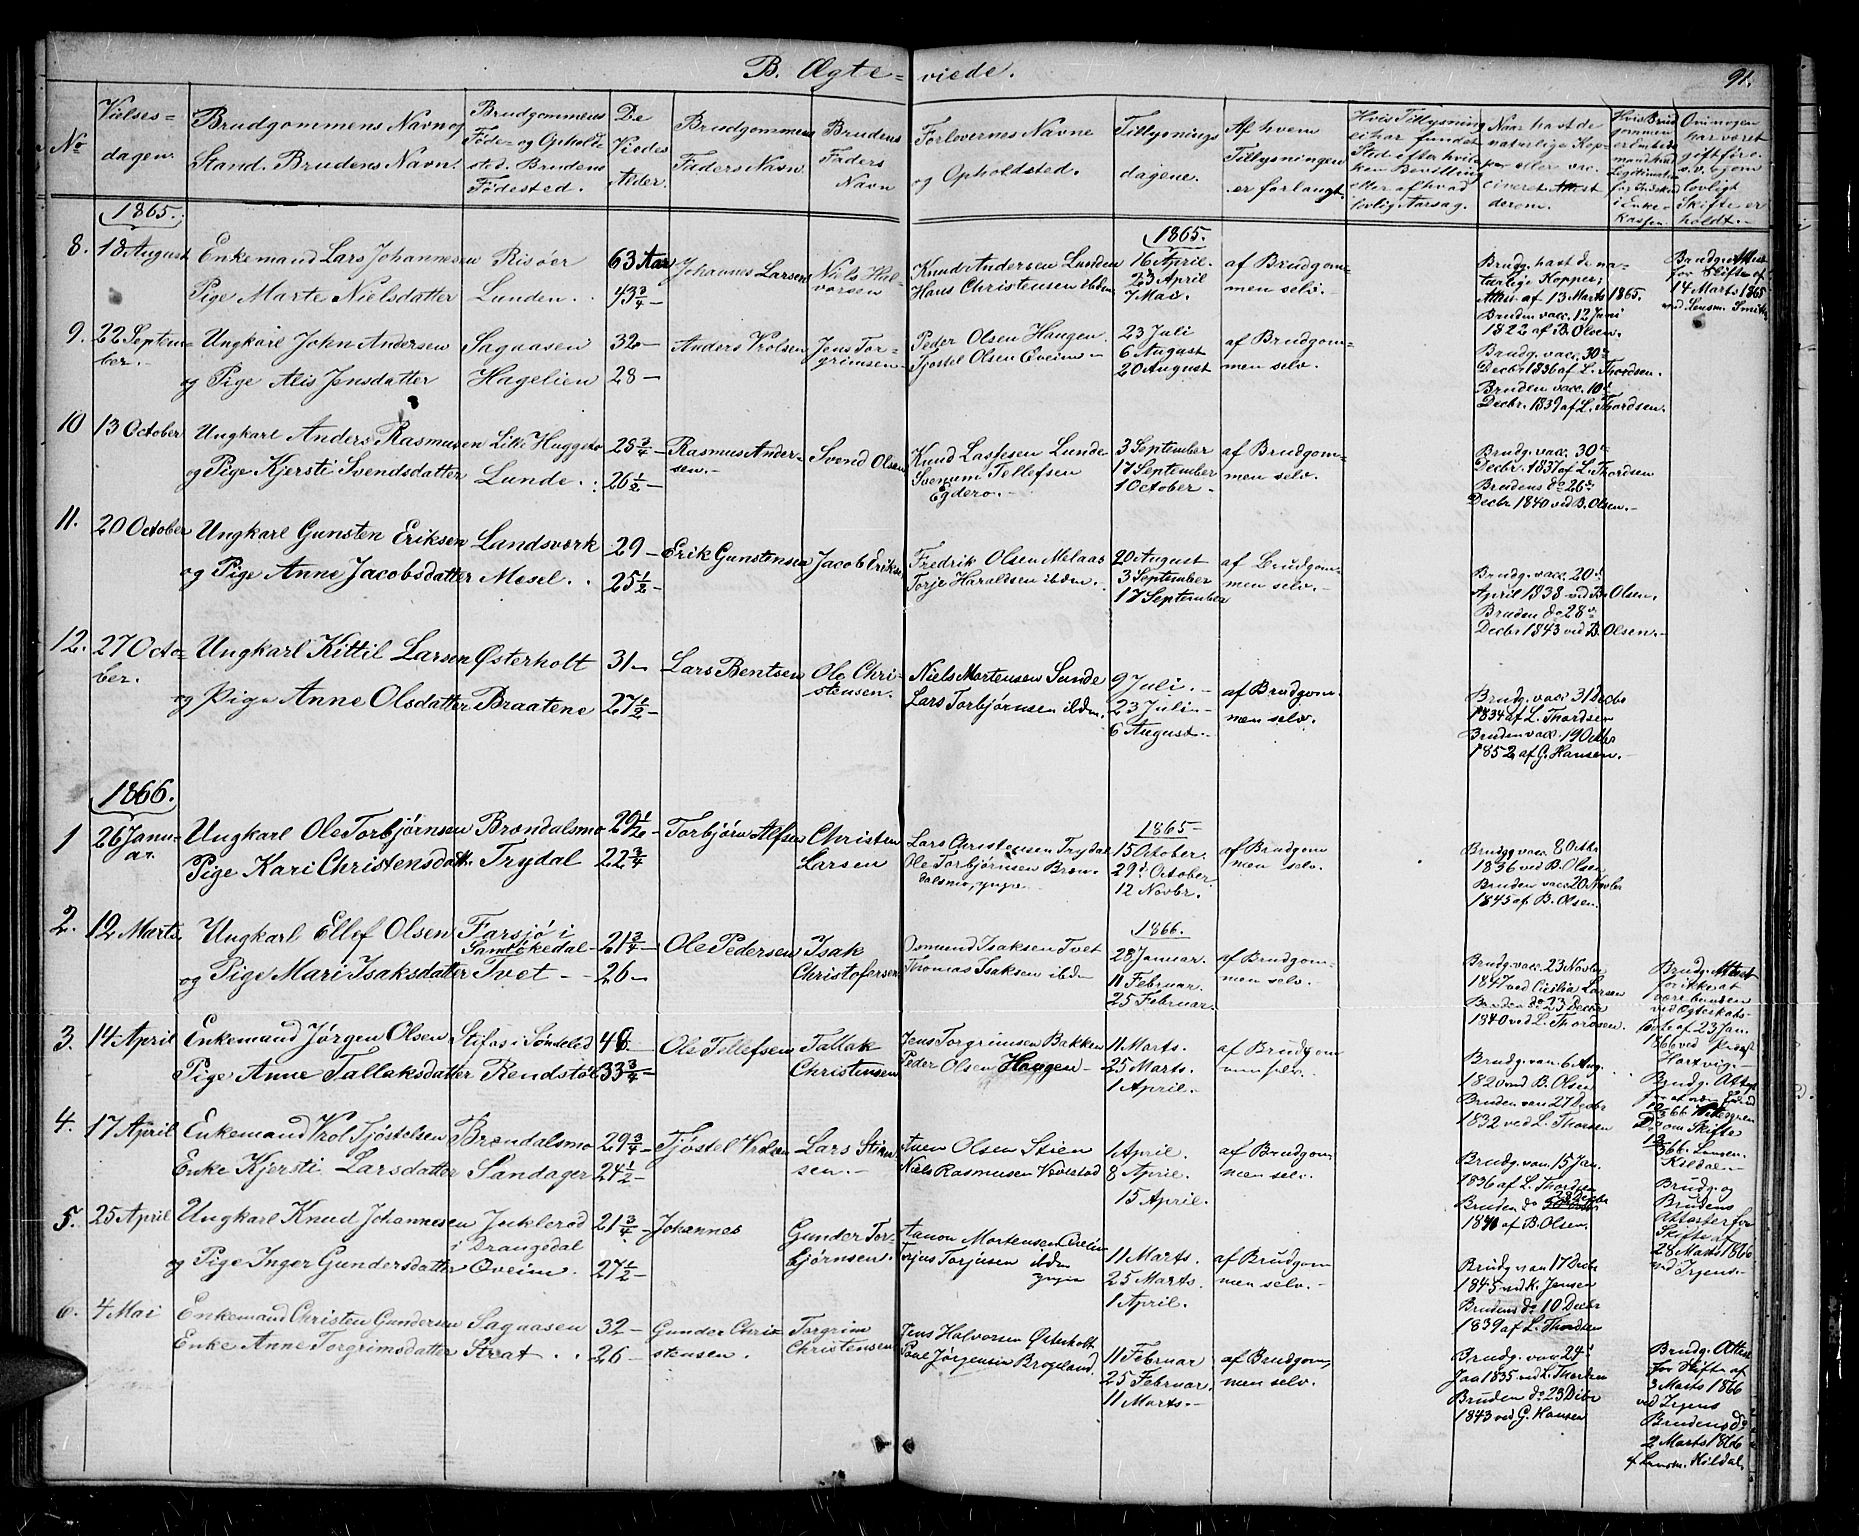 B. Ægte= viede.
91.
No
Vielses=
dagen.
Brudgommens Navn og
Stand. Brudens Navn.
Brudgommens
Føde- og Opholds
sted. Brudens
Fødested.
De
Viedes
Alder.
Brudgommens
Faders Navn
Brudens
Faders
Navn
Forlovernes Navne
og Opholdsted.
Tillysnings
dagene.
Af hvem
Tillysningen
er forlangt.
Hvis Tillysning
ei har fundet
Sted efter hvil
ken Bevilling
eller af hvad
lovlig Aarsag.
Naar havt de
naturlige Kop-
per eller vac
cineret Attest
derom.
Hvis Brud
gommen
er Embeds
mand hvad
Legitimation
for Indskud
i Enke
Kassen.
Om nogen
har været
gift før o.
s. v. hvem
lovligt
Skifte er
holdt.
1865.
8. 18 August
Enkemand Lars Johannesen
Pige Marte Nielsdatter
Risøer
Lunden.
63 Aar
43 3/4 —
Johannes Larsen
Niels Hal-
vorsen
Knud Andersen Lunden
Hans Christensen ibden
1865.
16 April.
23 April
7 Mai.
af Brudgom=
men selv.
Brudg. havt de na-
turlige Kopper,
Attest af 13 Marts 1865.
Bruden vacc. 12 Juni
1822 af B. Olsen.
Brudg. Attest
for Skifte af
14 Marts 1865
ved Lensm. Smith
9. 22 Septem=
ber.
Ungkarl John Andersen
og Pige Alis Jensdatter
Sagaasen
Hagelien
32 —
28 —
Anders Vrolsen
Jens Tor-
grimsen
Peder Olsen Haugen
Tjøstel Olsen Oveim
23 Juli
6 August
20 August
af Brudgom=
men selv.
Brudg. vacc. 30te
Decbr. 1836 af L. Thordsen.
Bruden vacc. 10d
Decbr. 1839 af L. Thordsen.
10 13 October
Ungkarl Anders Rasmusen
og Pige Kjersti Svendsdatter
Lunde.
25 3/4 —
26 1/2 —
Rasmus Ander-
sen.
Svend Olsen
Knud Lassesen Lunde
Svenum Tellefsen
Egdero.
3 September
17 September
1 October.
af Brudgom=
men selv.
Brudg. vacc. 30te
Decbr. 1837 af L. Thordsen
Brudens do 26de
Decbr 1840 ved B. Olsen.
11. 20 October
Ungkarl Gunsten Eriksen
og Pige Anne Jacobsdatter
Landsverk
Mesel.
29 —
25 1/2 —
Erik Gunstensen
Jacob Eriksen
Fredrik Olsen Melaas
Torje Haraldsen ibden.
20 August
3 September
17 September
af Brudgom=
men selv.
Brudg. vacc. 20d
April 1838 ved B. Olsen.
Bruden do 28de
Decbr 1843 ved B. Olsen.
12. 27 Octo=
ber.
Ungkarl Kittil Larsen
og Pige Anne Olsdatter
Østerholt
Braatene
31 —
27 1/2 —
Lars Bentsen
Ole Chri-
stensen.
Niels Mortensen Sunde
Lars Torbjørnsen ibden.
9 Juli.
23 Juli.
6 August.
af Brudgom=
men selv.
Brudg. vacc 31 Decbr
1834 af L. Thordsen
Bruden vacc. 19 Octbr
1852 af G. Hansen.
1866.
1 26 Janu=
ar.
Ungkarl Ole Torbjørnsen
Pige Kari Christensdatt.
Brændalsmo
Trydal
29 1/2 —
22 3/4
Torbjørn Alfsen
Christen
Larsen
Lars Christensen Trydal
Ole Torbjørnsen Bræn-
dalsmo, yngre
1865
15 October.
29d October.
12 Novbr.
af Brudgom
men selv.
Brudg. vacc. 8 Octbr
1836 ved B. Olsen
Bruden vacc 20 Novbr
1845 af B. Olsen.
2. 12 Marts
Ungkarl Ellef Olsen
og Pige Mari Isaksdatter
Farsjø i
Sandøkedal
Tvet
21 3/4 —
26 —
Ole Pedersen
Isak
Christofersen
Osmund Isaksen Tvet
Thomas Isaksen ibden
1866.
28 Januar.
11 Februar.
25 Februar.
af Brudgom=
men selv.
Brudg. vacc. 23 Novbr
1847 ved Cicilia Larsen
Bruden do 23 Decbr
1840 ved L. Thordsen.
Brudg. Attest
for ikke at
være bunden
ved Ægteskabs-
løfte af 23 Jan.
1866 ved Provst
Hartvig.
3. 14 April
Enkemand Jørgen Olsen
Pige Anne Tallaksdatter
Stifos i Søndeled
Rendstøl
46
33 3/4 —
Ole Tellefsen
Tallak
Christensen
Jens Torgrimsen Bakken
Peder Olsen Haugen
11 Marts.
25 Marts.
1 April.
af Brudgom
men selv.
Brudg. vacc. 6 Aug.
1820 ved B. Olsen
Bruden vacc 27 Decbr
1832 ved L. Thorsen
4. 17 April
Enkemand Vrol Tjøstelsen
Enke Kjersti Larsdatter
Brændalsmo
Sandager
29 3/4 —
24 1/2 —
Tjøstel Vrolsen
Lars Stian
sen.
Aven Olsen Stien
Niels Rasmusen Vedelstad
1 April.
8 April.
15 April.
af Brudgom
men selv.
Brudg. vacc. 15 Jan.
1836 af L. Thordsen
Bruden do 28 Decbr
1841 af B. Olsen.
Brudg. og
Brudens
Attester for
Skifte af
28 Marts 1866
ved Irgens.
5. 25 April
Ungkarl Knud Johannesen
og Pige Inger Gundersdatter
Juklerød
i Drangedal
Oveim.
21 3/4 —
27 1/2 —
Johannes
Gunder Tor-
bjørnsen.
Aanon Mortensen Oveim
Torjus Torjusen ibden
yngre
11 Marts.
25 Marts.
1 April.
af Brudgom
men selv.
Brudg. vacc 17 Decbr
1845 ved K. Jensen
Brudens do 10 Decbr
1839 af L. Thordsen
6. 4 Mai
Enkemand Christen Gundersen
Enke Anne Torgrimsdatter
Sagaasen
Straat
32 —
26 —
Gunder Chri-
stensen.
Torgrim
Christensen
Jens Halvorsen Østerholt
Paul Jørgensen Brogeland
11 Februar
25 Februar.
11 Marts.
af Brudgom
men selv.
Brudg. vacc 24d
Jan 1835 ved L. Thorsen
Bruden do 23 Decbr
1843 ved G. Hansen
Brudg. Attest
for Skifte af
3 Marts 1866
ved Irgens
Brudens do
2 Marts 1866
af Lensm. Kildal.